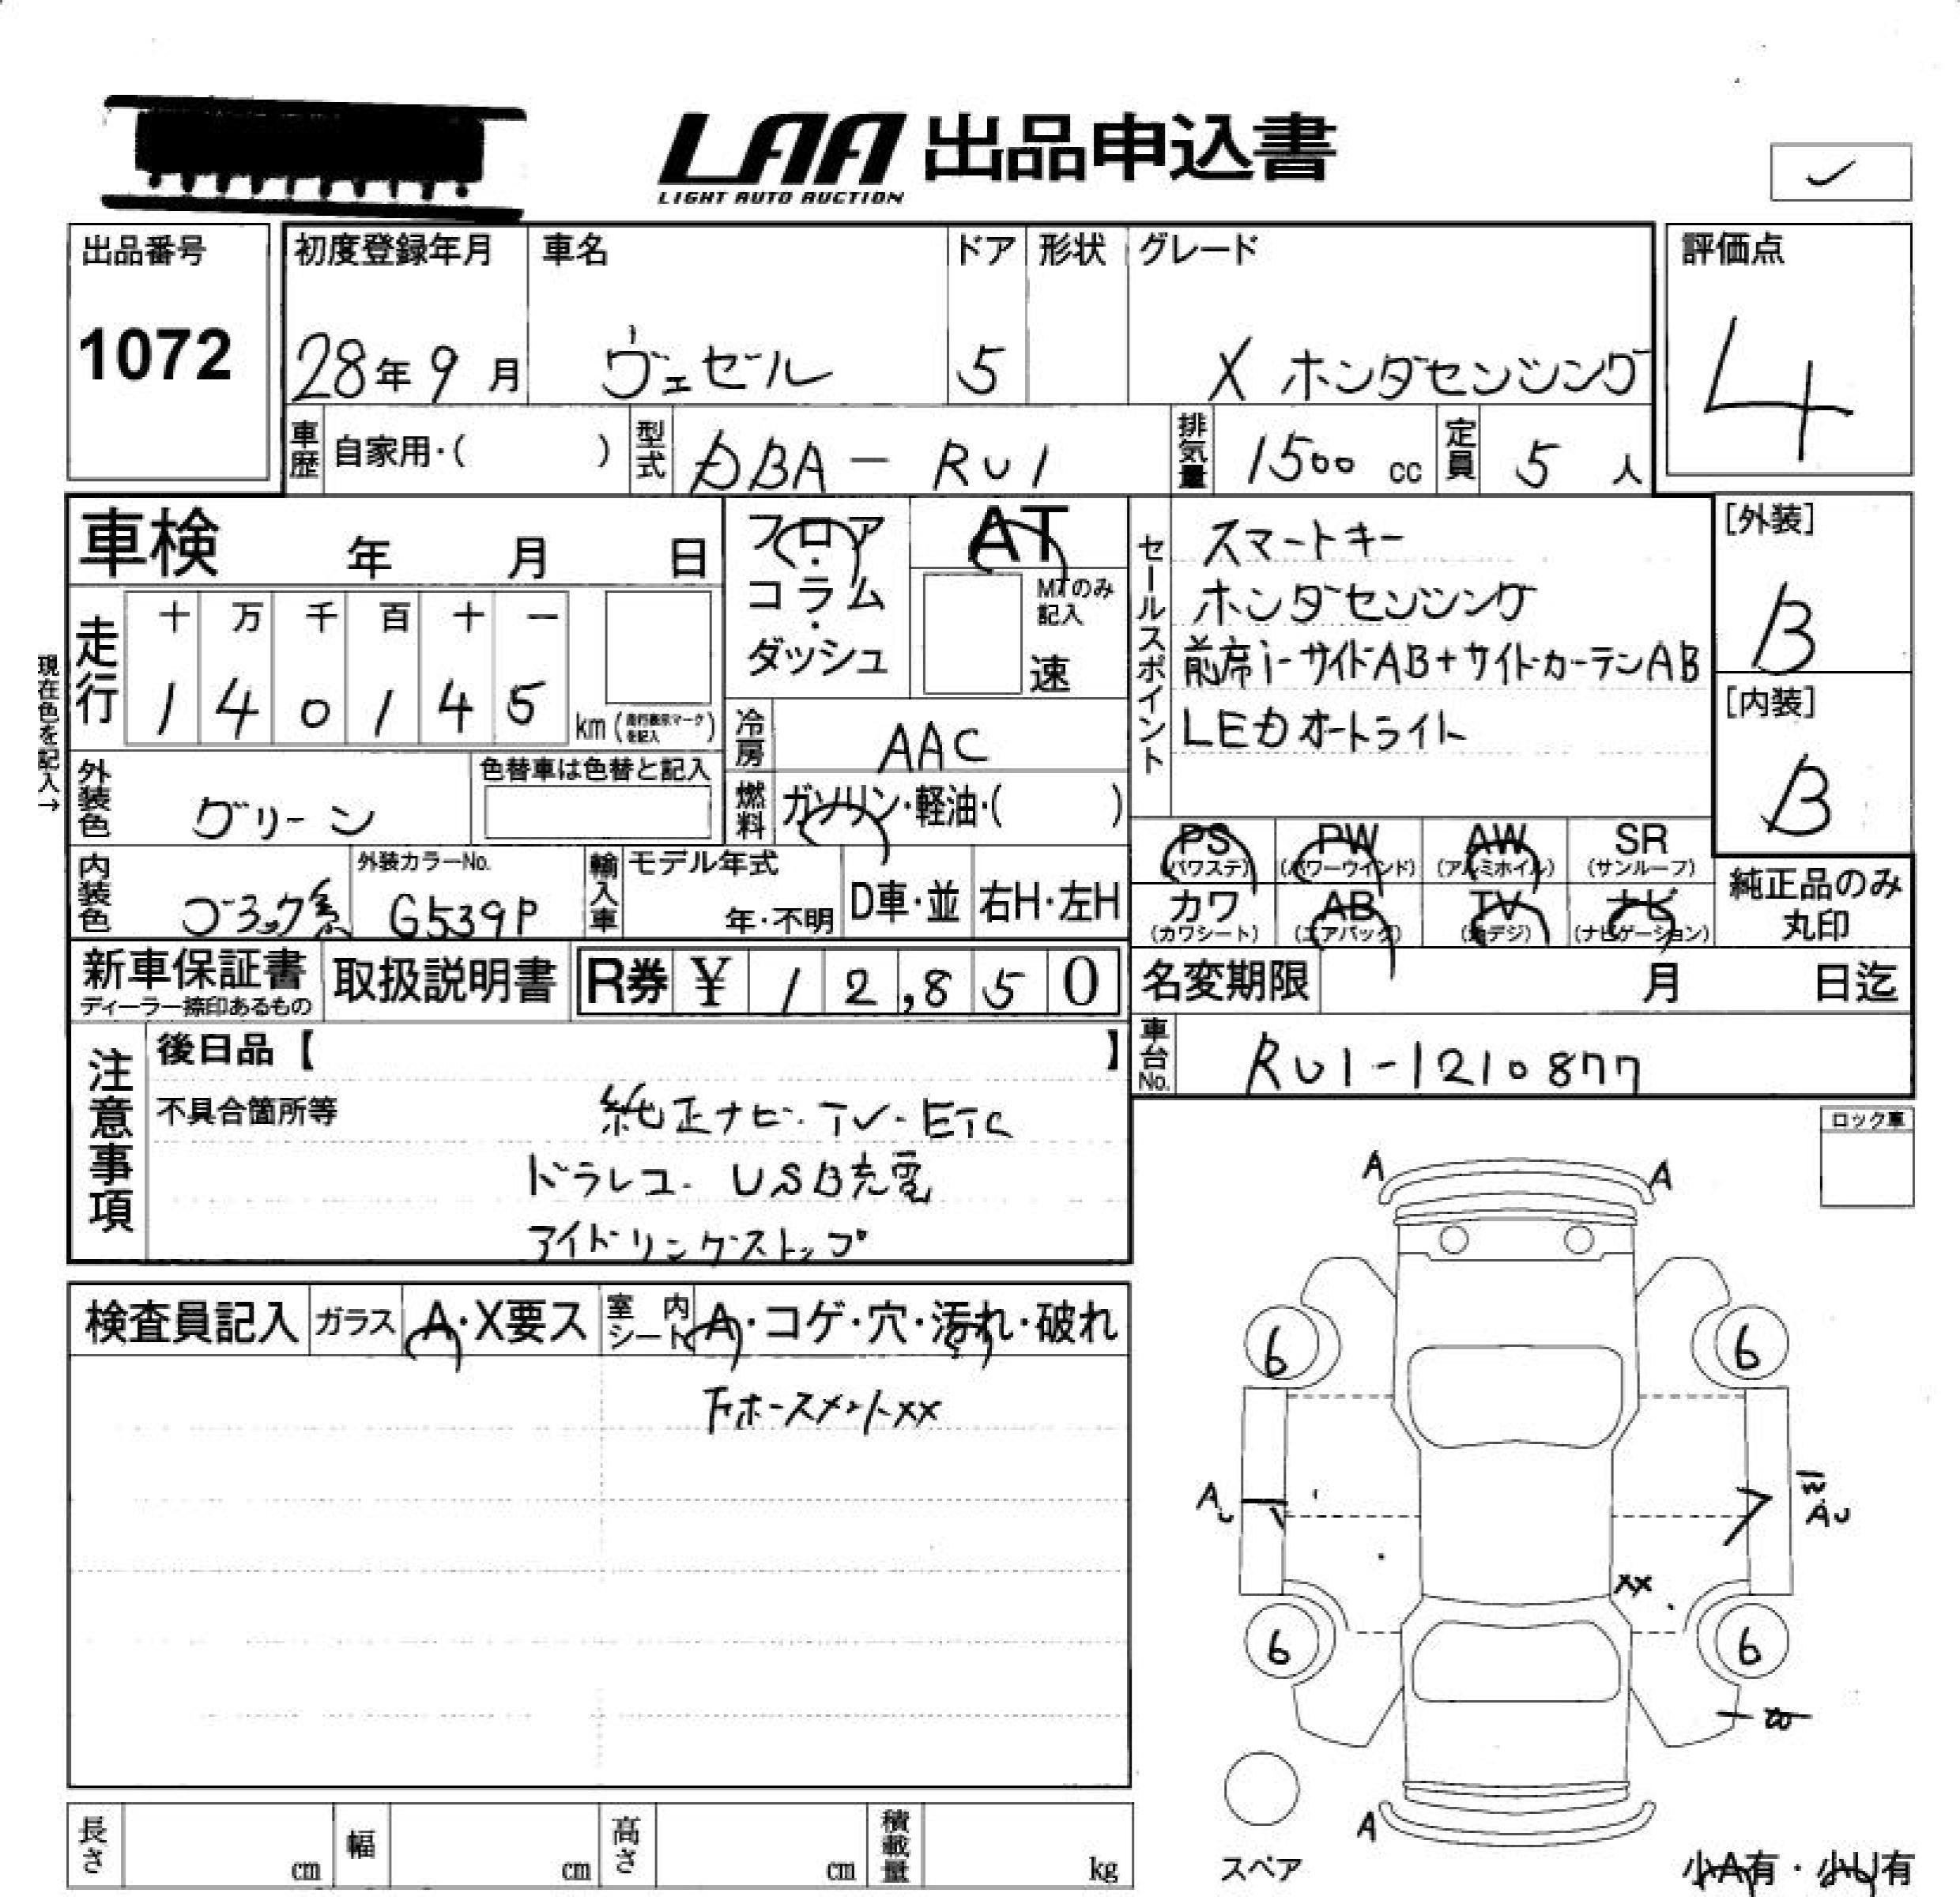 LAA 出品申込書
LIGHT AUTO AUCTION
出品番号
1072
初度登録年月
28年9月
車名
ヴェゼル
ドア
5
形状
グレード
X ホンダセンシング
評価点
4
車歴 自家用・( )
型式 DBA-RU1
排気量 1500 cc
定員 5 人
車検 年 月 日
フロア・コラム・ダッシュ
AT
MTのみ記入
速
セールスポイント
スマートキー
ホンダセンシング
前席i-サイドAB+サイドカーテンAB
LEDオートライト
[外装]
B
[内装]
B
現在色を記入→
走行
十 万 千 百 十 一
1 4 0 1 4 5
km (走行表示マークを記入)
冷房 AAC
燃料 ガソリン・軽油・( )
外装色 グリーン
色替車は色替と記入
内装色 ブラック系
外装カラーNo.
G539P
輸入車 モデル年式
年・不明
D車・並
右H・左H
PS (パワステ)
PW (パワーウインド)
AW (アルミホイル)
SR (サンルーフ)
カワ (カワシート)
AB (エアバッグ)
TV (地デジ)
ナビ (ナビゲーション)
純正品のみ丸印
新車保証書
ディーラー捺印あるもの
取扱説明書
R券 ¥ 12,850
名変期限 月 日迄
車台No. RU1-1210877
注意事項
後日品【 】
不具合箇所等
純正ナビ・TV・ETC
ドラレコ・USB充電
アイドリングストップ
ロック車
検査員記入
ガラス A・X要ス
室内シート A・コゲ・穴・汚れ・破れ
下ホースメントXX
A A
6 6
AU
AU
XX
6 6
A
スペア
小A有・小U有
長さ cm
幅 cm
高さ cm
積載量 kg